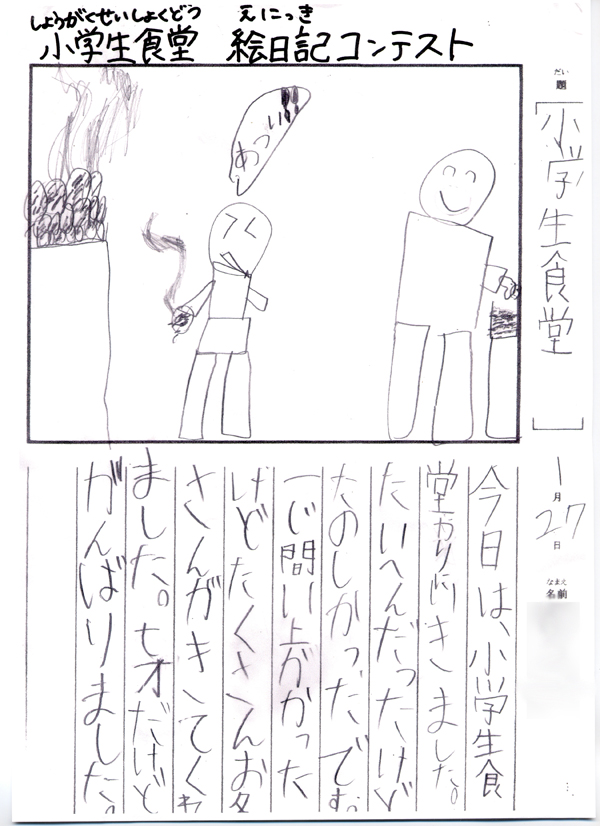 しょうがくせいしょくどう えにっき
小学生食堂 絵日記コンテスト
だい
題
小学生食堂
1月27日
なまえ
名前
あつい!!
今日は、小学生食
堂やりにいきました。
たいへんだったけど
たのしかったです。
一じ間い上かかった
けどたくさんお客
さんがきてくれ
ました。七才だけど
がんばりました。